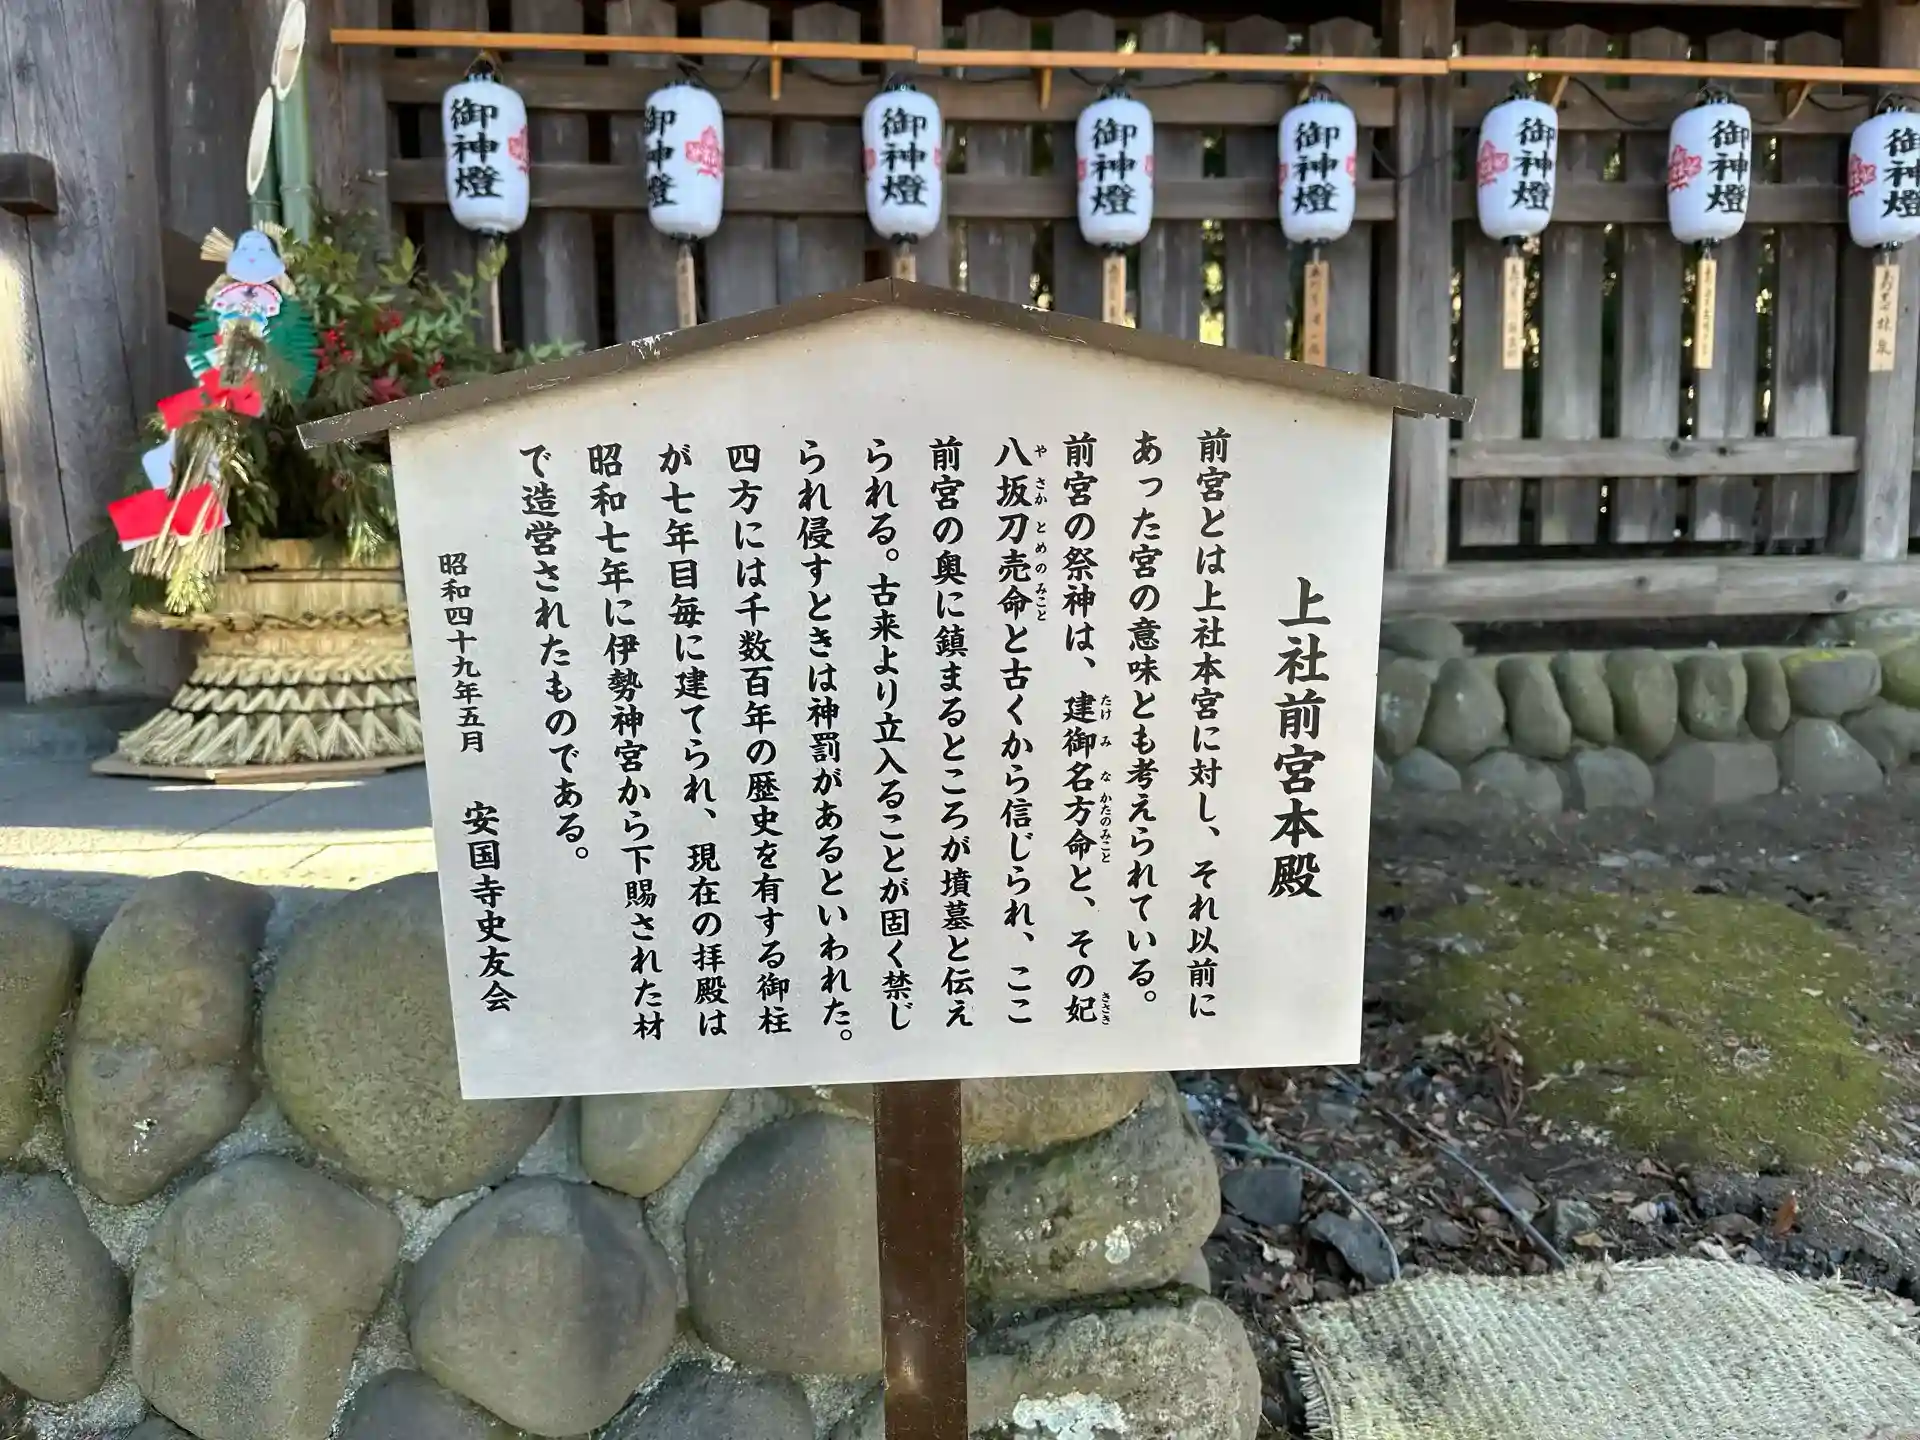 御神燈
御神燈
御神燈
御神燈
御神燈
御神燈
御神燈
御神燈
上社前宮本殿
前宮とは上社本宮に対し、それ以前に
あった宮の意味とも考えられている。
前宮の祭神は、建御名方命と、その妃
たけ み な かたのみこと
きさき
八坂刀売命と古くから信じられ、ここ
や さか と めのみこと
前宮の奥に鎮まるところが墳墓と伝え
られる。古来より立入ることが固く禁じ
られ侵すときは神罰があるといわれた。
四方には千数百年の歴史を有する御柱
が七年目毎に建てられ、現在の拝殿は
昭和七年に伊勢神宮から下賜された材
で造営されたものである。
昭和四十九年五月 安国寺史友会